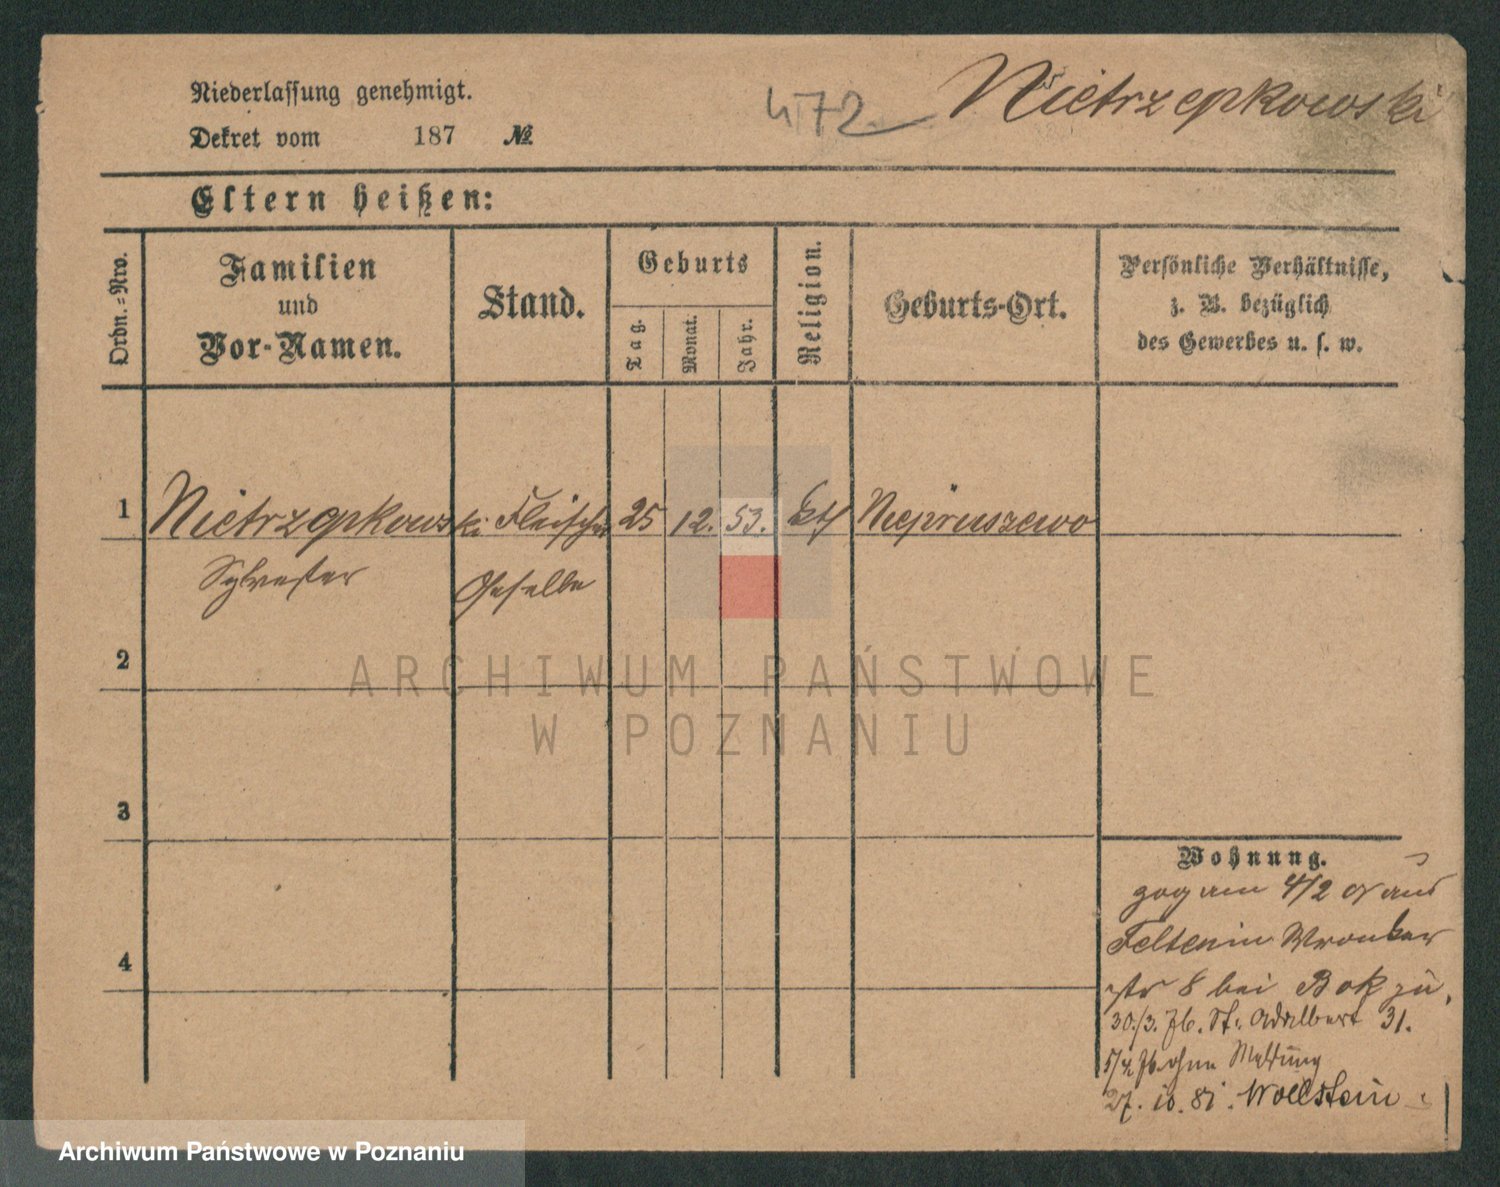 Niederlassung genehmigt.
472 Nietrzepkowski
Dekret vom 187 №
Eltern heißen:
Ordn.=Nro.
Familien
und
Vor-Namen.
Stand.
Geburts
Tag.
Monat.
Jahr.
Religion.
Geburts-Ort.
Persönliche Verhältnisse,
z. B. bezüglich
des Gewerbes u. s. w.
1 Nietrzepkowski Fleischer 25 12. 53. kth Niepruszewo
Sylvester Geselle
2
ARCHIWUM PAŃSTWOWE
W POZNANIU
3
Wohnung.
zog am 4/2 aus
Wronker
str 8 bei Bok zu,
30./3. St. Adalbert 31.
5/4 ohne Meldung
27. 10. 81. Wollstein
4
Archiwum Państwowe w Poznaniu